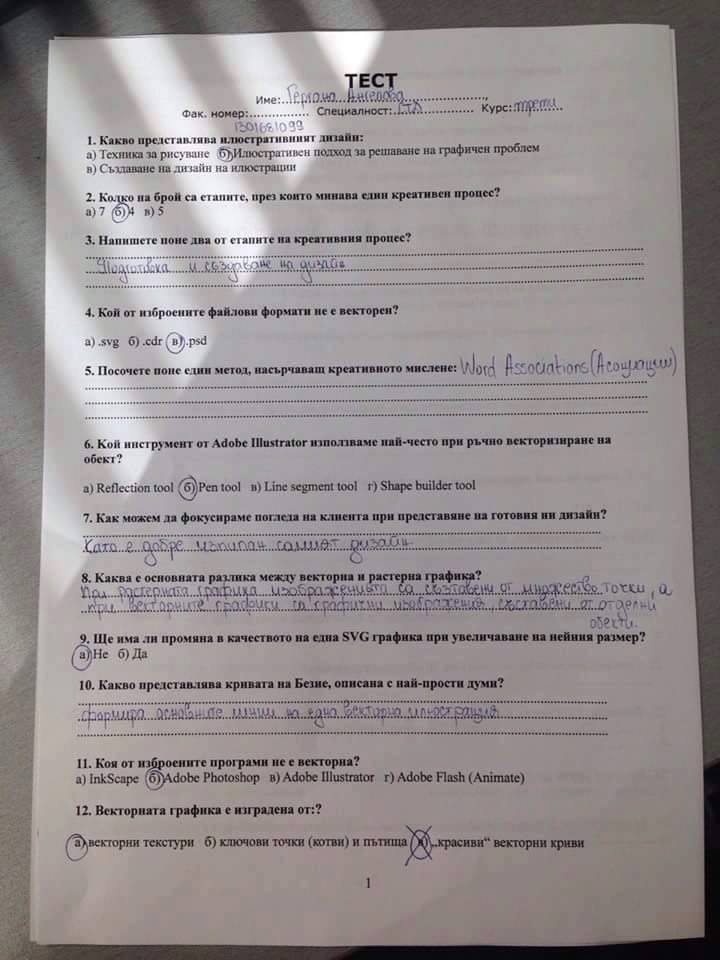 ТЕСТ
Име: Гергана Ангелова
Фак. номер: Специалност: СТД Курс: трети
1301681099
1. Какво представлява илюстративният дизайн:
а) Техника за рисуване б) Илюстративен подход за решаване на графичен проблем
в) Създаване на дизайн на илюстрации
2. Колко на брой са етапите, през които минава един креативен процес?
а) 7 б) 4 в) 5
3. Напишете поне два от етапите на креативния процес?
Подготовка и създаване на дизайн
4. Кой от изброените файлови формати не е векторен?
а) .svg б) .cdr в) .psd
5. Посочете поне един метод, насърчаващ креативното мислене: Word Associations (Асоциации)
6. Кой инструмент от Adobe Illustrator използваме най-често при ръчно векторизиране на
обект?
а) Reflection tool б) Pen tool в) Line segment tool г) Shape builder tool
7. Как можем да фокусираме погледа на клиента при представяне на готовия ни дизайн?
Като е добре изпипан самият дизайн
8. Каква е основната разлика между векторна и растерна графика?
При растерната графика изображенията са съставени от множество точки, а
при векторните графики са графични изображения, съставени от отделни
обекти.
9. Ще има ли промяна в качеството на една SVG графика при увеличаване на нейния размер?
а) Не б) Да
10. Какво представлява кривата на Безие, описана с най-прости думи?
формира основните линии на една векторна илюстрация
11. Коя от изброените програми не е векторна?
а) InkScape б) Adobe Photoshop в) Adobe Illustrator г) Adobe Flash (Animate)
12. Векторната графика е изградена от:?
а) векторни текстури б) ключови точки (котви) и пътища в) „красиви“ векторни криви
1